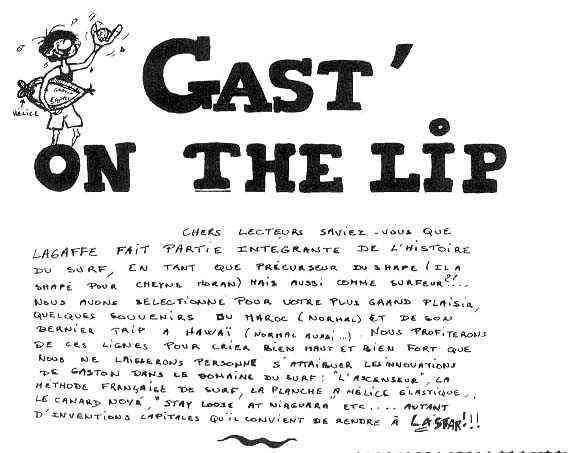 GAST'
ON THE LIP
HELICE
CHERS LECTEURS SAVIEZ-VOUS QUE
LAGAFFE FAIT PARTIE INTEGRANTE DE L'HISTOIRE
DU SURF, EN TANT QUE PRÉCURSEUR DU SHAPE (IL A
SHAPÉ POUR CHEYNE HORAN) MAIS AUSSI COMME SURFEUR?!...
NOUS AVONS SELECTIONNÉ POUR VOTRE PLUS GRAND PLAISIR,
QUELQUES SOUVENIRS DU MAROC (NORMAL) ET DE SON
DERNIER TRIP A HAWAÏ (NORMAL AUSSI...) NOUS PROFITERONS
DE CES LIGNES POUR CRIER BIEN HAUT ET BIEN FORT QUE
NOUS NE LAISSERONS PERSONNE S'ATTRIBUER LES INNOVATIONS
DE GASTON DANS LE DOMAINE DU SURF: "L'ASCENSEUR, LA
METHODE FRANÇAISE DE SURF, LA PLANCHE A HELICE ELASTIQUE..
LE CANARD NOYÉ, "STAY LOOSE AT NIAGUARA ETC.... AUTANT
D'INVENTIONS CAPITALES QU'IL CONVIENT DE RENDRE À LASTAR!!!